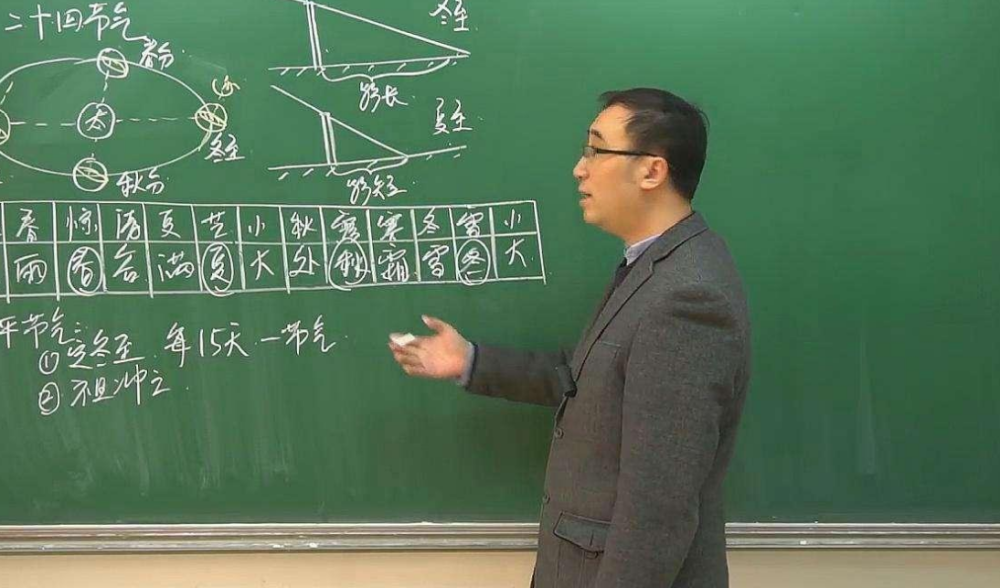 二十四节气
春分
太
冬至
秋分
冬至
影长
夏至
影短
春 惊 清 夏 芒 小 秋 露 寒 冬 雪 小
雨 春 谷 满 夏 大 处 秋 霜 雪 冬 大
平节气:
① 定冬至 每15天一节气
② 祖冲之